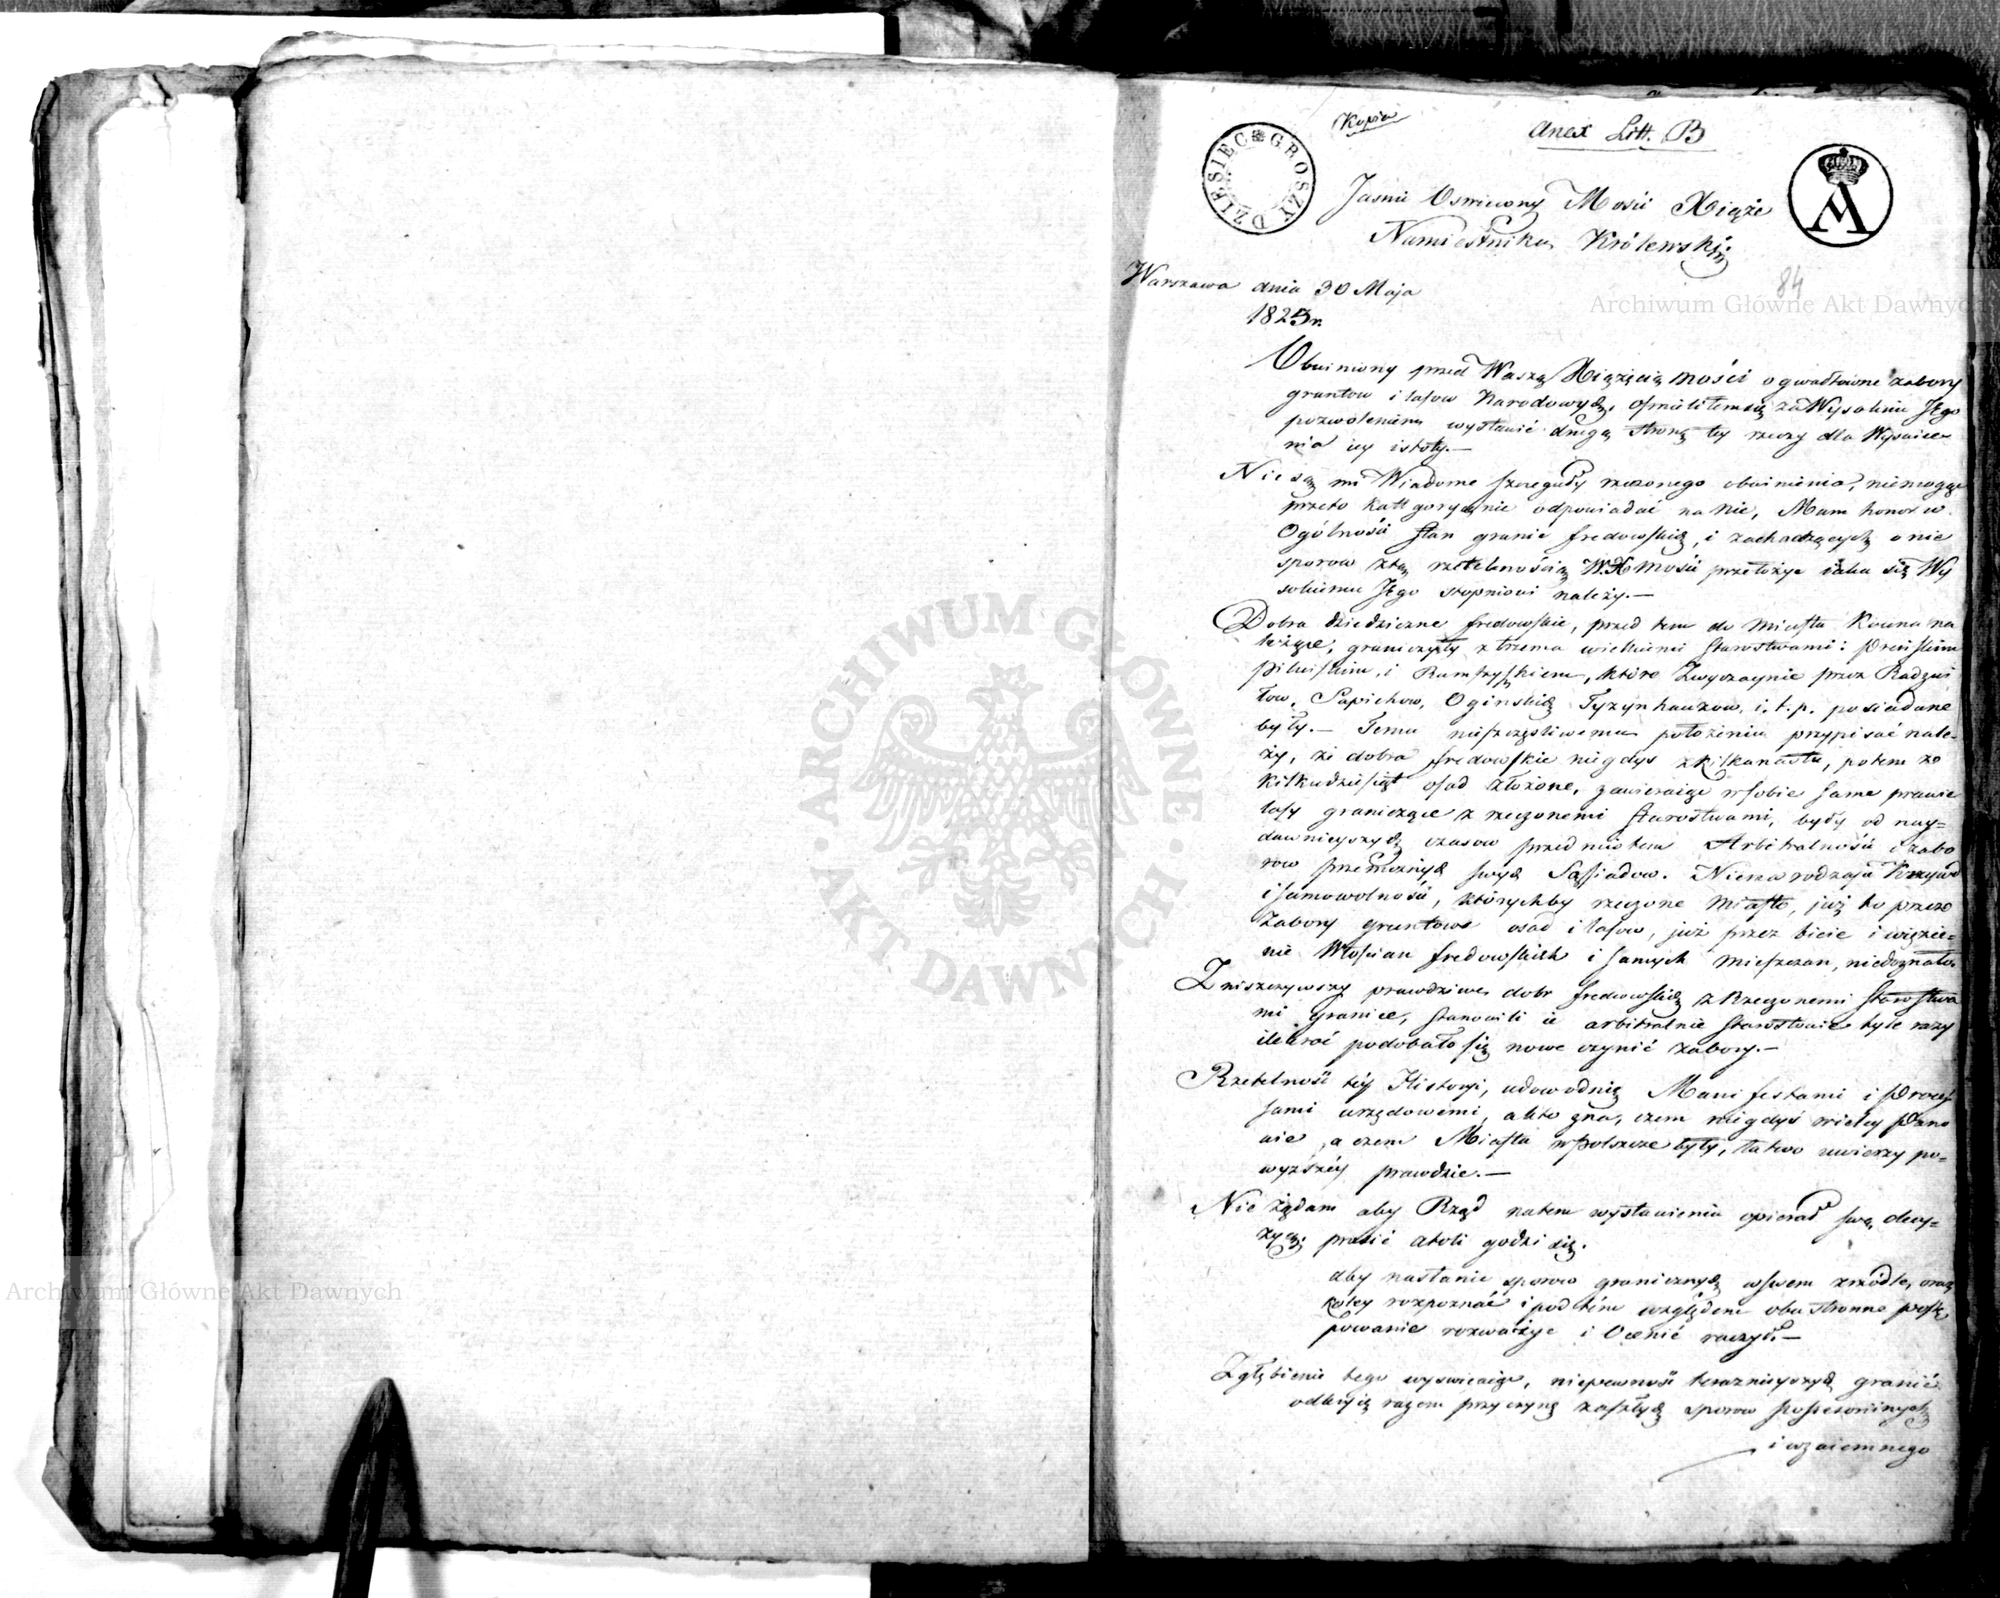 Kopia
Anex Litt. B
DZIESIEC GROSZY
Jaśnie Oswiecony Mości Xiąże
Namiestniku Królewski
84
Warszawa dnia 30 Maja
1825 r.
Obwiniony przed Waszą Xiążęcią Mości o gwałtowne zabory
gruntow i lasow Narodowych, osmieliłem się za Wysokim JEgo
pozwoleniem wystawić drugą stronę tey rzeczy dla Wyświce=
nia iey istoty.—
Nie są mi Wiadome szczeguły rzeczonego obwinienia, niemogąc
przeto kattgorycznie odpowiadać na Nie, Mam honor w
Ogólności stan granic fredowskich, i zachadzących o nie
sporow ztą rzetelnością W.X Mości przełożyc iaka się Wy
sokiemu JEgo stopniowi należy.—
Dobra dziedziczne fredowskie, przed tem do Miasta Kowna na
leżące, graniczyły z trzema wielkiemi Starostwami: Preńskim
Pilwiskim, i Rumszyskiem, które Zwyczaynie przez Radziwi
łow, Sapiehow, Oginskich Tyzynhauzow, i. t. p. posiadane
były.— Temu nieszczęśliwemu położeniu przypisać nale=
ży, że dobra fredowskie niegdys z kilkanastu, potem ze
kilkudziesiąt osad złożone, zawieraiąc w sobie same prawie
lasy graniczące z rzeczonemi Starostwami, były od nay=
dawnieyszych czasow przedmiotem Arbitralności i zabo
row przemożnych swych Sąsiadow. Niema rodzaju Krzywd
i samowolności, którychby rzeczone Miasto, już to przez
Zabory gruntowe osad i lasow, już przez bicie i więzie=
nie Włoscian fredowskich i samych Mieszczan, niedoznało.
Zniszczywszy prawdziwe dobr fredowskich z Rzeczonemi Starostwa
mi granice, stanowili ie arbitralnie Starostowie tyle razy
ilekroć podobało się nowe czynić zabory.—
Rzetelność téy Historyi, udowodnię Manifestami i Proces
sami urzędowemi, a kto zna, czem niegdyś wielcy Pano
wie, a czem Miasta w Polszcze były, łatwo uwierzy po=
wyższéy prawdzie.—
Nie żądam aby Rząd na tem wystawieniu opierał swą decy=
zyę; prosić atoli godzi się.
aby nastanie sporow granicznych w swem zrzódle, oraz
koley rozpoznać i pod tém względem obustronne postę
powanie rozważyc i Ocenić raczył.—
Zgłębienie tego wyswiecaiąc, niepewność teraznieyszych granic
odkryie razem przyczynę zaszłych sporow possesoryinych
i wzaiemnego
ARCHIWUM GŁÓWNE AKT DAWNYCH
Archiwum Główne Akt Dawnych
Archiwum Główne Akt Dawnych